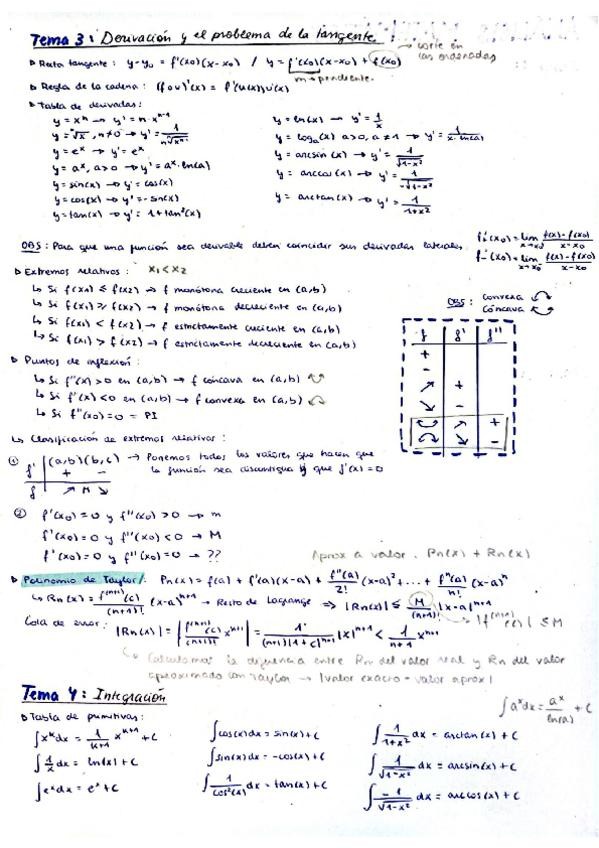 Tema 3: Derivación y el problema de la tangente.
▷ Recta tangente: y-y₀ = f'(x₀)(x-x₀) / y = f'(x₀)(x-x₀) + f(x₀) → corte en las ordenadas
m → pendiente.
▷ Regla de la cadena: (f∘u)'(x) = f'(u(x))u'(x)
▷ Tabla de derivadas:
y = xⁿ → y' = n·xⁿ⁻¹
y = ⁿ√x, n≠0 → y' = 1/(n ⁿ√xⁿ⁻¹)
y = eˣ → y' = eˣ
y = aˣ, a>0 → y' = aˣ·ln(a)
y = sin(x) → y' = cos(x)
y = cos(x) → y' = -sin(x)
y = tan(x) → y' = 1+tan²(x)
y = ln(x) → y' = 1/x
y = logₐ(x) a>0, a≠1 → y' = 1/(x·ln(a))
y = arcsin(x) → y' = 1/√(1-x²)
y = arccos(x) → y' = 1/-√(1-x²)
y = arctan(x) → y' = 1/(1+x²)
OBS: Para que una función sea derivable deben coincidir sus derivadas laterales.
f₊'(x₀) = lim x→x₀⁺ (f(x)-f(x₀))/(x-x₀)
f₋'(x₀) = lim x→x₀⁻ (f(x)-f(x₀))/(x-x₀)
▷ Extremos relativos: x₁<x₂
↳ Si f(x₁) ≤ f(x₂) → f monótona creciente en (a,b)
↳ Si f(x₁) ≥ f(x₂) → f monótona decreciente en (a,b)
↳ Si f(x₁) < f(x₂) → f estrictamente creciente en (a,b)
↳ Si f(x₁) > f(x₂) → f estrictamente decreciente en (a,b)
OBS: convexa
cóncava
f f' f''
+
-
↗ +
↘ -
↗ +
↘ -
▷ Puntos de inflexión:
↳ Si f''(x) > 0 en (a,b) → f cóncava en (a,b)
↳ Si f'(x) < 0 en (a,b) → f convexa en (a,b)
↳ Si f''(x₀) = 0 = PI
↳ Clasificación de extremos relativos:
① (a,b) (b,c) → Ponemos todos los valores que hacen que
f' + - la función sea discontigua y que f'(x)=0
f ↗ M ↘
② f'(x₀)=0 y f''(x₀)>0 → m
f'(x₀)=0 y f''(x₀)<0 → M
f'(x₀)=0 y f''(x₀)=0 → ??
Aprox a valor. Pn(x) + Rn(x)
▷ Polinomio de Taylor: Pn(x) = f(a) + f'(a)(x-a) + f''(a)/2! (x-a)² + ... + fⁿ(a)/n! (x-a)ⁿ
↳ Rn(x) = f⁽ⁿ⁺¹⁾(c)/(n+1)! (x-a)ⁿ⁺¹ → Resto de Lagrange ⇒ |Rn(x)| ≤ M/(n+1)! |x-a|ⁿ⁺¹
→ |f⁽ⁿ⁺¹⁾(c)| ≤ M
Cota de error: |Rn(x)| = |f⁽ⁿ⁺¹⁾(c)/(n+1)! xⁿ⁺¹| = 1/((n+1)|1+c|ⁿ⁺¹) |x|ⁿ⁺¹ < 1/(n+1) xⁿ⁺¹
↳ Calculamos la diferencia entre Rn del valor real y Rn del valor
aproximado con Taylor → |valor exacto - valor aprox|
Tema 4: Integración
∫aˣdx = aˣ/ln(a) + C
▷ Tabla de primitivas:
∫xᵏdx = 1/(k+1) xᵏ⁺¹ + C
∫1/x dx = ln(x) + C
∫eˣdx = eˣ + C
∫cos(x)dx = sin(x) + C
∫sin(x)dx = -cos(x) + C
∫1/cos²(x) dx = tan(x) + C
∫1/(1+x²) dx = arctan(x) + C
∫1/√(1-x²) dx = arcsin(x) + C
∫-1/√(1-x²) dx = arccos(x) + C